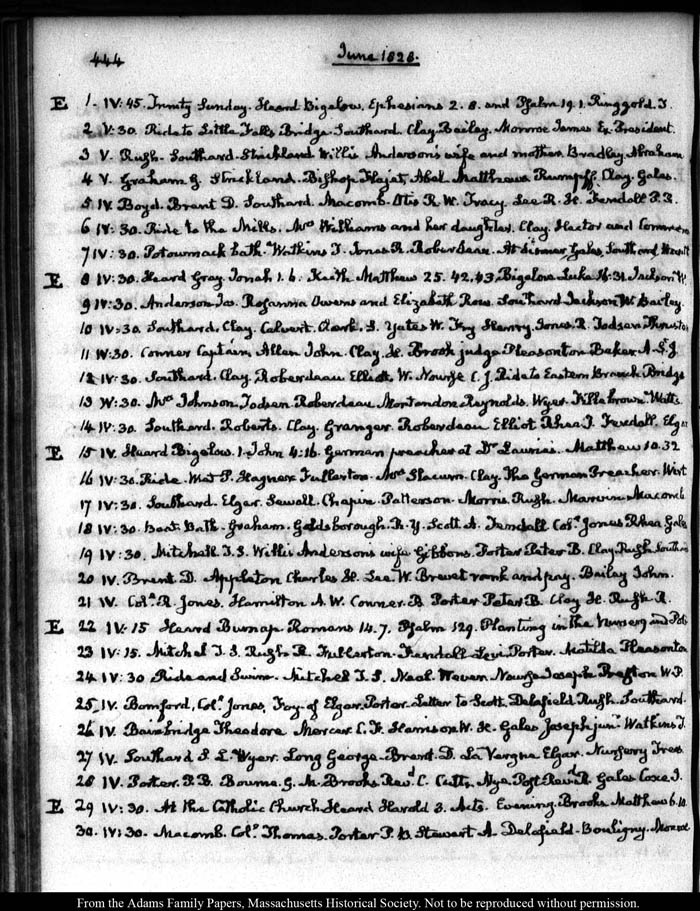 444
June 1828.
E 1. IV:45. Trinity Sunday. Heard Bigelow. Ephesians 2. 8. and Psalm 19. 1. Ringgold. T.
2 V:30. Ride to Little Falls Bridge. Southard. Clay. Bailey. Monroe James Ex. President.
3 V. Rush. Southard. Strickland. Willis Anderson's wife and mother. Bradley. Abraham
4 V. Graham G. Strickland. Bishop Abel Matthews Rumpff. Clay. Gales.
5 IV. Boyd. Brent D. Southard. Macomb. Otis R. W. Tracy. Lee R. H. Fendall P. R.
6 IV:30. Ride to the Mills. Mrs Williams and her daughter. Clay. Hector and
7 IV:30. Potowmack bath. Watkins T. Jones R. Roberdeau. At dinner Gales, Southard
E 8 IV:30. Heard Gray. Jonah 1. 6. Keith Matthew 25. 42,43. Bigelow Luke 16:31. Jackson W.
9 IV:30. Anderson Jas. Rosanna Owens and Elizabeth Rows. Southard Jackson W. Bailey.
10 IV:30. Southard. Clay. Calvert. Clark. S. Yates W. Fry Henry. Jones. R. Todsen Thruston
11 IV:30. Conner Captain. Allen John. Clay. H. Brook judge Pleasonton Baker A. S. J.
12 IV:30. Southard. Clay. Roberdeau Elliot. W. Nourse C. J. Ride to Eastern Branch Bridge
13 IV:30. Mrs Johnson. Todsen Roberdeau Montandon Reynolds. Wyer. Fillebrown. Watts.
14 IV:30. Southard. Roberts. Clay. Granger. Roberdeau Elliot Rhea J. Fendall. Elgar
E 15 IV. Heard Bigelow. 1. John 4:16. German preacher at Dr Laurie's. Matthew 10. 32
16 IV:30. Ride. P. Hagner Fullerton. Mrs Slacum. Clay. The German Preacher. Wirt
17 IV:30. Southard. Elgar. Sewall. Chapin. Patterson. Morris. Rush. Marvin Macomb
18 IV:30. Boat. Bath. Graham. Goldsborough. R. Y. Scott A. Fendall Col. Jones Rhea Gales
19 IV:30. Mitchell T. S. Willis Anderson's wife Gibbons. Porter Peter B. Clay. Rush Southard
20 IV. Brent D. Appleton Charles H. Lee. W. Brevet rank and pay. Bailey John.
21 IV. Col. R. Jones. Hamilton A. W. Conner. B. Porter Peter B. Clay H. Rush R.
E 22 IV:15 Heard Burnap Romans 14. 7. Psalm 129. Planting in the Nursery and Pots
23 IV:15. Mitchel T. S. Rush R. Fullerton. Fendall Levi Porter. Matilda Pleasonton
24 IV:30 Ride and Swim. Mitchel T. S. Neal. Weaver Nourse Joseph Preston W. P.
25 IV. Bomford, Col. Jones, Foy. of Elgar. Porter. Letter to Scott. Delafield Rush. Southard.
26 IV. Bainbridge Theodore Mercer C. F. Harrison W. H. Gales Joseph junr. Watkins T.
27 IV. Southard S. L. Wyer. Long George. Brent. D. La Vergne. Elgar. Nursery Trees.
28 IV. Porter. P. B. Bourne. G. M. Brooks Revd. C. Cutts, Nye. Post Revd R. Gales Coxe. J.
E 29 IV:30. At the Catholic Church Heard Harold 3. Acts. Evening. Brooks Matthew 6. 10.
30. IV:30. Macomb. Col. Thomas. Porter P. B. Stewart A. Delafield. Bouligny. Monroe
From the Adams Family Papers, Massachusetts Historical Society. Not to be reproduced without permission.